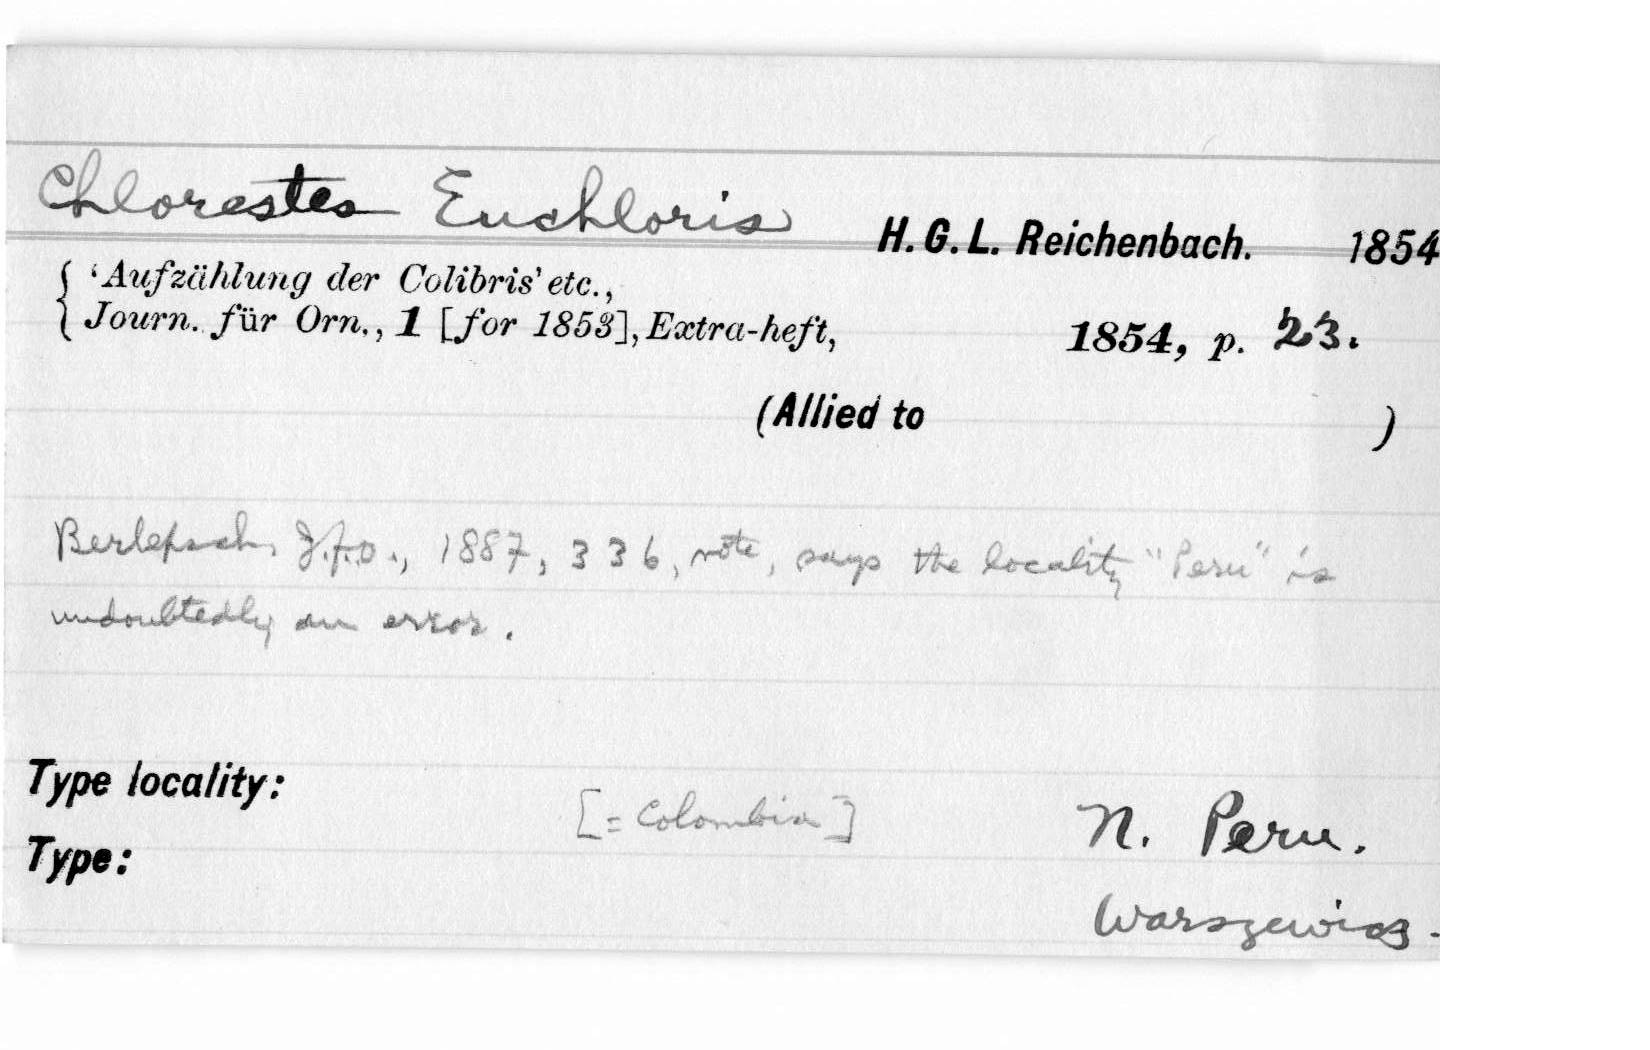 Chlorestes Euchloris H. G. L. Reichenbach. 1854
'Aufzählung der Colibris' etc.,
Journ. für Orn., 1 [for 1853], Extra-heft, 1854, p. 23.
(Allied to )
Berlepsch, J.f.O., 1887, 336, note, says the locality "Peru" is
undoubtedly an error.
Type locality: [= Colombia] N. Peru.
Type:
Warszewicz.